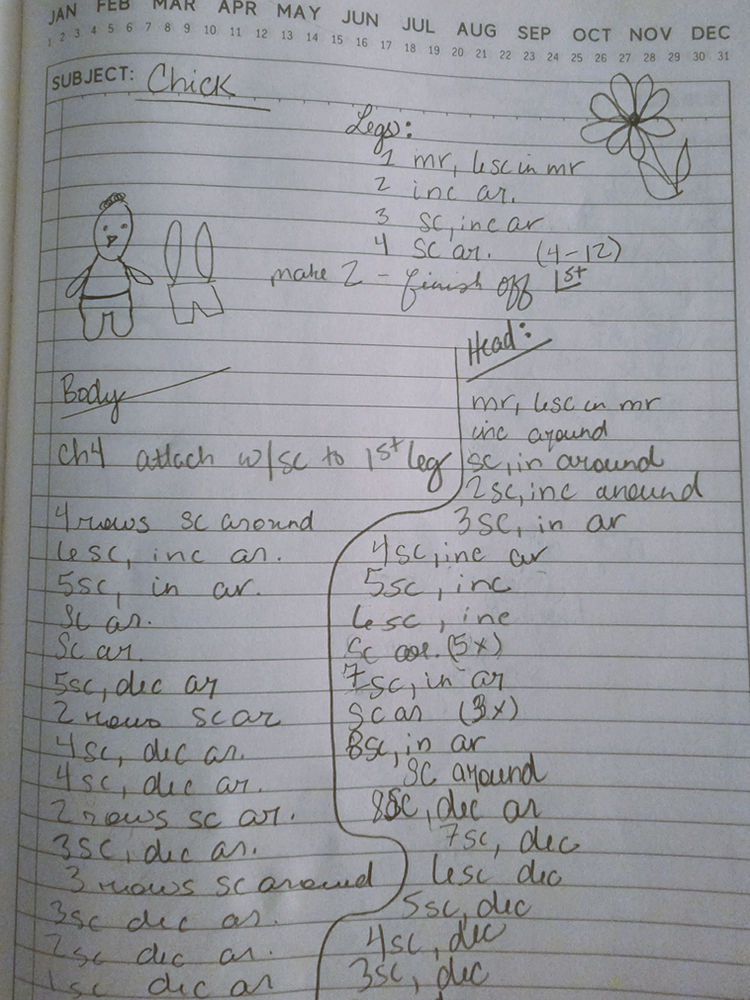 JAN FEB MAR APR MAY JUN JUL AUG SEP OCT NOV DEC
1 2 3 4 5 6 7 8 9 10 11 12 13 14 15 16 17 18 19 20 21 22 23 24 25 26 27 28 29 30 31
SUBJECT: Chick
Legs:
1 mr, 6sc in mr
2 inc ar.
3 sc, inc ar
4 sc ar. (4-12)
make 2 - finish off 1st
Body
ch4 attach w/sc to 1st leg
4 rows sc around
6sc, inc ar.
5sc, in ar.
sc ar.
sc ar.
5sc, dec ar
2 rows sc ar
4sc, dec ar.
4sc, dec ar.
2 rows sc ar.
3sc, dec ar.
3 rows sc around
3sc dec ar.
2sc dec ar.
1sc dec ar
Head:
mr, 6sc in mr
inc around
sc, in around
2sc, inc around
3sc, in ar
4sc, inc ar
5sc, inc
6sc, inc
sc ar. (5x)
7sc, in ar
sc ar (3x)
8sc, in ar
sc around
8sc, dec ar
7sc, dec
6sc dec
5sc, dec
4sc, dec
3sc, dec